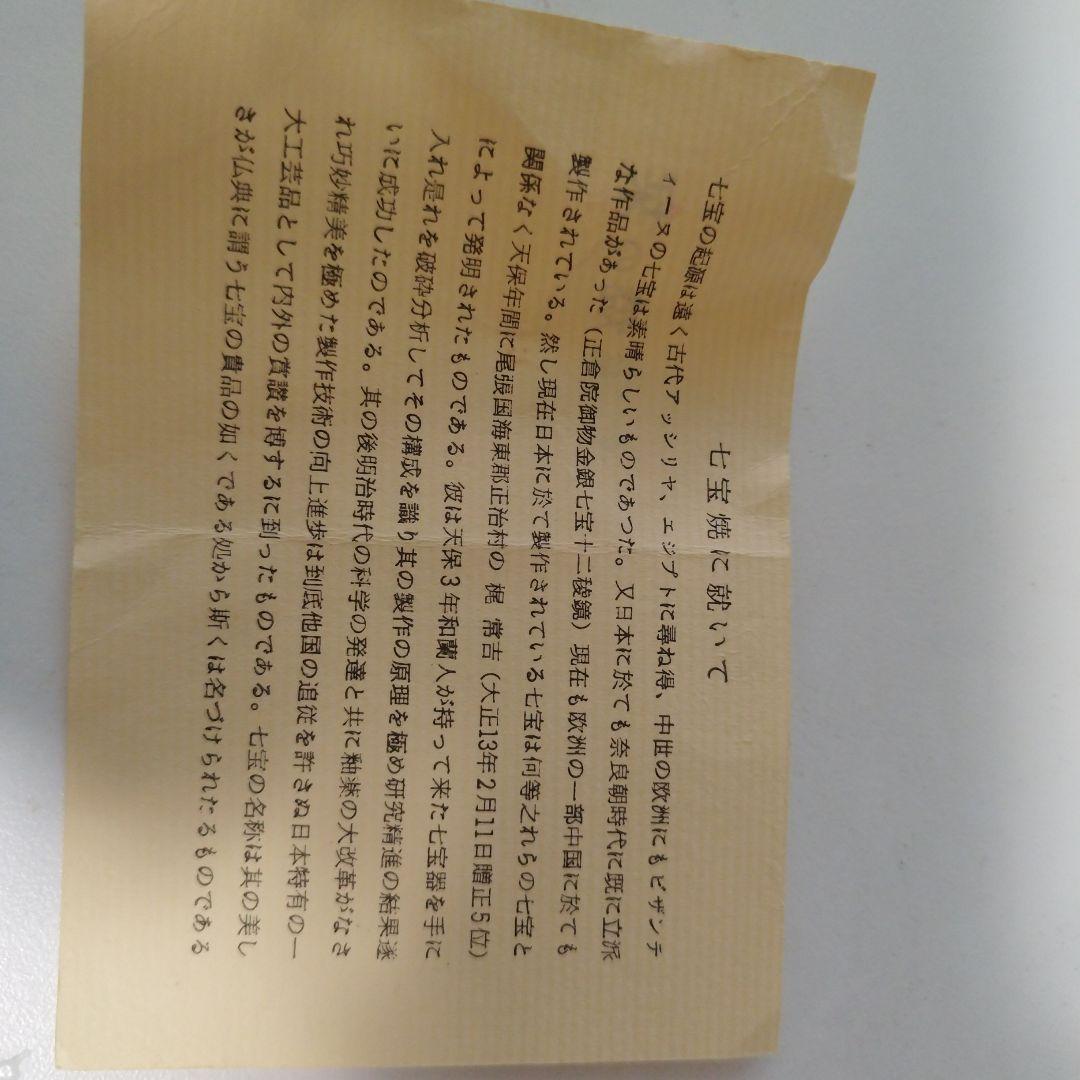 七宝焼に就いて
七宝の起源は遠く古代アッシリヤ、エジプトに尋ね得、中世の欧洲にもビザンテ
ィーヌの七宝は素晴らしいものであつた。又日本に於ても奈良朝時代に既に立派
な作品があった（正倉院御物金銀七宝十二稜鏡）現在も欧洲の一部中国に於ても
製作されている。然し現在日本に於て製作されている七宝は何等之れらの七宝と
関係なく天保年間に尾張国海東郡正治村の 梶 常吉（大正13年2月11日贈正5位）
によって発明されたものである。彼は天保3年和蘭人が持って来た七宝器を手に
入れ是れを破砕分析してその構成を識り其の製作の原理を極め研究精進の結果遂
いに成功したのである。其の後明治時代の科学の発達と共に釉薬の大改革がなさ
れ巧妙精美を極めた製作技術の向上進歩は到底他国の追従を許さぬ日本特有の一
大工芸品として内外の賞讃を博するに到ったものである。七宝の名称は其の美し
さが仏典に謂う七宝の貴品の如くである処から斯くは名づけられたるものである